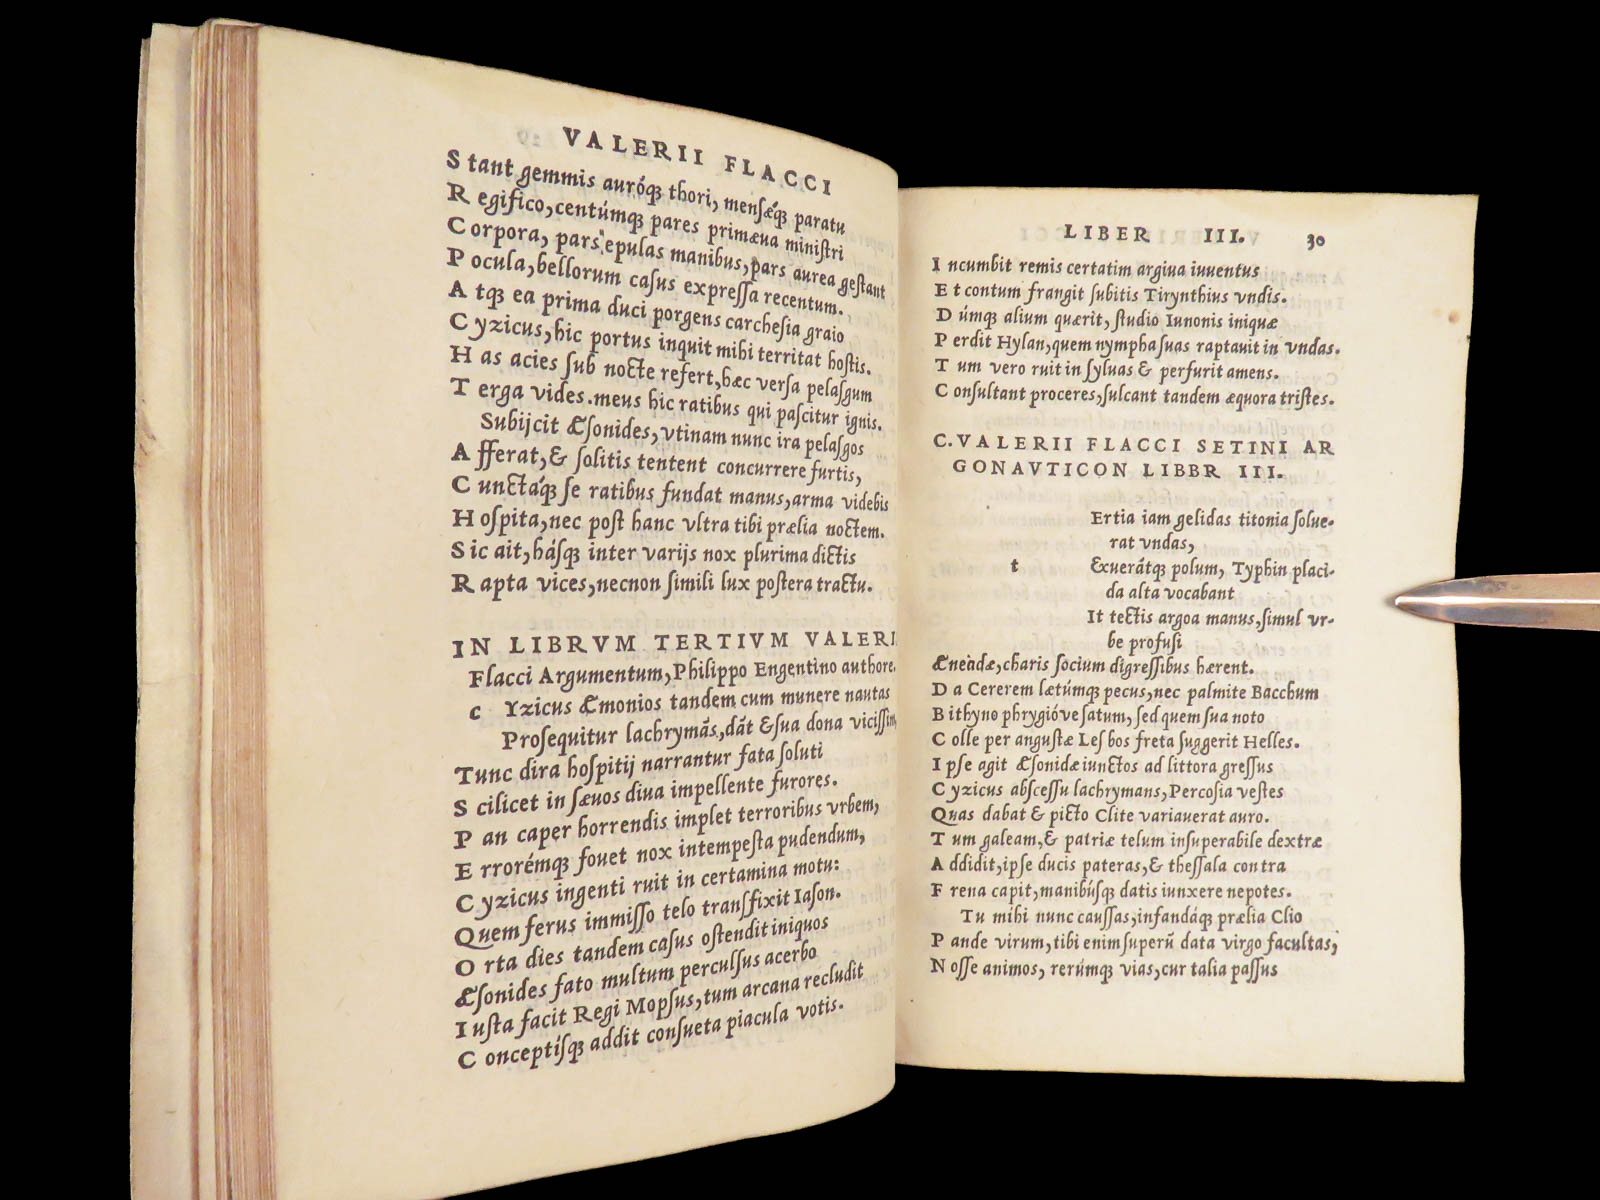 VALERII FLACCI
S tant gemmis auróq; thori, mensǽq; paratu
R egifico, centúmq; pares primæua ministri
C orpora, pars epulas manibus, pars aurea gestant
P ocula, bellorum casus expressa recentum.
A tq; ea prima duci porgens carchesia graio
C yzicus, hic portus inquit mihi territat hostis.
H as acies sub nocte refert, hæc versa pelasgum
T erga vides. meus hic ratibus qui pascitur ignis.
Subijcit Æsonides, vtinam nunc ira pelasgos
A fferat, & solitis tentent concurrere furtis,
C unctáq; se ratibus fundat manus, arma videbis
H ospita, nec post hanc vltra tibi prælia noctem.
S ic ait, hásq; inter varijs nox plurima dictis
R apta vices, necnon simili lux postera tractu.
IN LIBRVM TERTIVM VALERI
Flacci Argumentum, Philippo Engentino authore.
c Yzicus Æmonios tandem cum munere nautas
Prosequitur lachrymãs, dãt & sua dona vicissim,
Tunc dira hospitij narrantur fata soluti
S cilicet in sæuos diua impellente furores.
P an caper horrendis implet terroribus vrbem,
E rrorémq; fouet nox intempesta pudendum,
C yzicus ingenti ruit in certamina motu:
Quem ferus immisso telo transfixit Iason.
O rta dies tandem casus ostendit iniquos
Æsonides fato multum perculsus acerbo
I usta facit Regi Mopsus, tum arcana recludit
C onceptísq; addit consueta piacula votis.
LIBER III. 30
I ncumbit remis certatim argiua iuuentus
E t contum frangit subitis Tirynthius vndis.
D úmq; alium quærit, studio Iunonis iniquæ
P erdit Hylan, quem nympha suas raptauit in vndas.
T um vero ruit in syluas & perfurit amens.
C onsultant proceres, sulcant tandem æquora tristes.
C. VALERII FLACCI SETINI AR
GONAVTICON LIBBR III.
Ertia iam gelidas titonia solue-
rat vndas,
t Exuerátq; polum, Typhin placi-
da alta vocabant
It tectis argoa manus, simul vr-
be profusi
Æneàdæ, charis socium digressibus hærent.
D a Cererem lætúmq; pecus, nec palmite Bacchum
B ithyno phrygióve satum, sed quem sua noto
C olle per angustæ Lesbos freta suggerit Helles.
I pse agit Æsonidæ iunctos ad littora gressus
C yzicus abscessu lachrymans, Percosia vestes
Quas dabat & picto Clite variauerat auro.
T um galeam, & patriæ telum insuperabile dextræ
A ddidit, ipse ducis pateras, & thessala contra
F rena capit, manibúsq; datis iunxere nepotes.
Tu mihi nunc caussas, infandáq; prælia Clio
P ande virum, tibi enim superũ data virgo facultas,
N osse animos, rerúmq; vias, cur talia passus